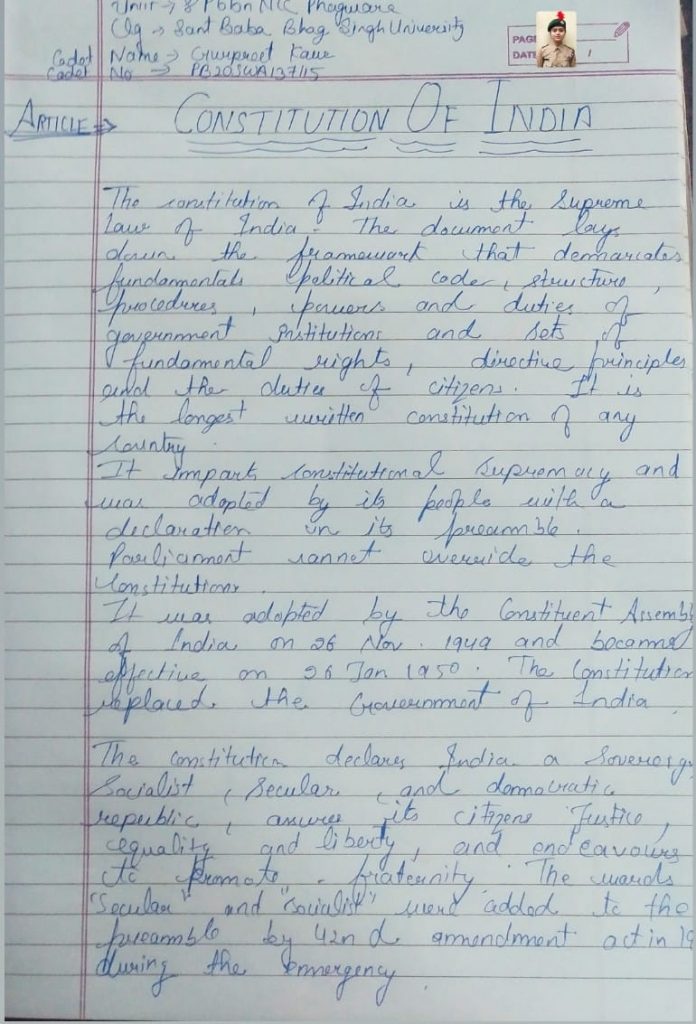 Unit → 8 PbBn NCC Phagwara
Clg → Sant Baba Bhag Singh University
Cadet Name → Gurpreet Kaur
Cadet No → PB20SWA137115
PAGE
DATE 1
ARTICLE ⇒ CONSTITUTION OF INDIA
The constitution of India is the Supreme
Law of India. The document lays
down the framework that demarcates
fundamentals political code, structure,
procedures, powers and duties of
government institutions and sets of
fundamental rights, directive principles
and the duties of citizens. It is
the longest written constitution of any
country.
It imparts constitutional supremacy and
was adopted by its people with a
declaration in its preamble.
Parliament cannot override the
Constitution.
It was adopted by the Constituent Assemb
of India on 26 Nov. 1949 and became
effective on 26 Jan 1950. The Constitution
replaced the Government of India
The constitution declares India a Sovereig
Socialist, Secular, and democratic
republic, its citizens Justice,
equality and liberty, and endeavours
to promote fraternity. The words
"Secular" and "socialist" were added to the
preamble by 42nd amendment act in 19
during the emergency.